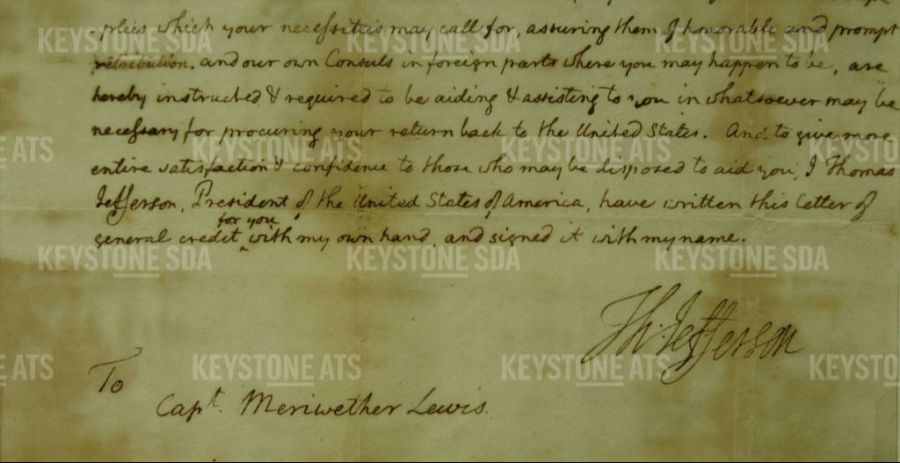 -plies which your necessities may call for, assuring them of honorable and prompt
retribution. and our own Consuls in foreign parts where you may happen to be, are
hereby instructed & required to be aiding & assisting to you in whatsoever may be
necessary for procuring your return back to the United States. And to give more
entire satisfaction & confidence to those who may be disposed to aid you, I Thomas
Jefferson, President of the United States of America, have written this letter of
for you
general credit ‸ with my own hand, and signed it with my name.
Th: Jefferson
To
Capt. Meriwether Lewis.
KEYSTONE SDA KEYSTONE SDA KEYSTONE SDA
ATS KEYSTONE ATS KEYSTONE ATS KEYSTONE
KEYSTONE SDA KEYSTONE SDA KEYSTONE SDA
ATS KEYSTONE ATS KEYSTONE ATS KEYSTONE